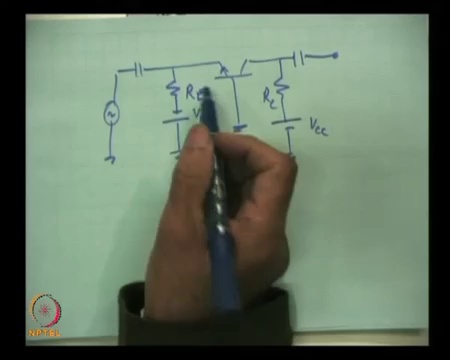 R_E
R_C
V
V_CC
NPTEL